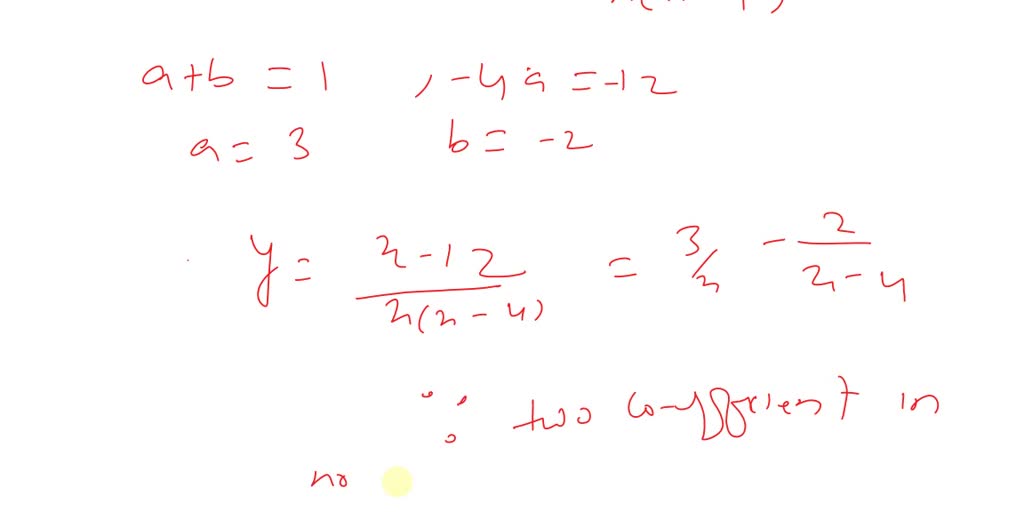 a+b = 1 , -4a = -12
a = 3 b = -2
y = x-12 / x(x-4) = 3/x - 2 / x-4
∵ two coefficient in
no